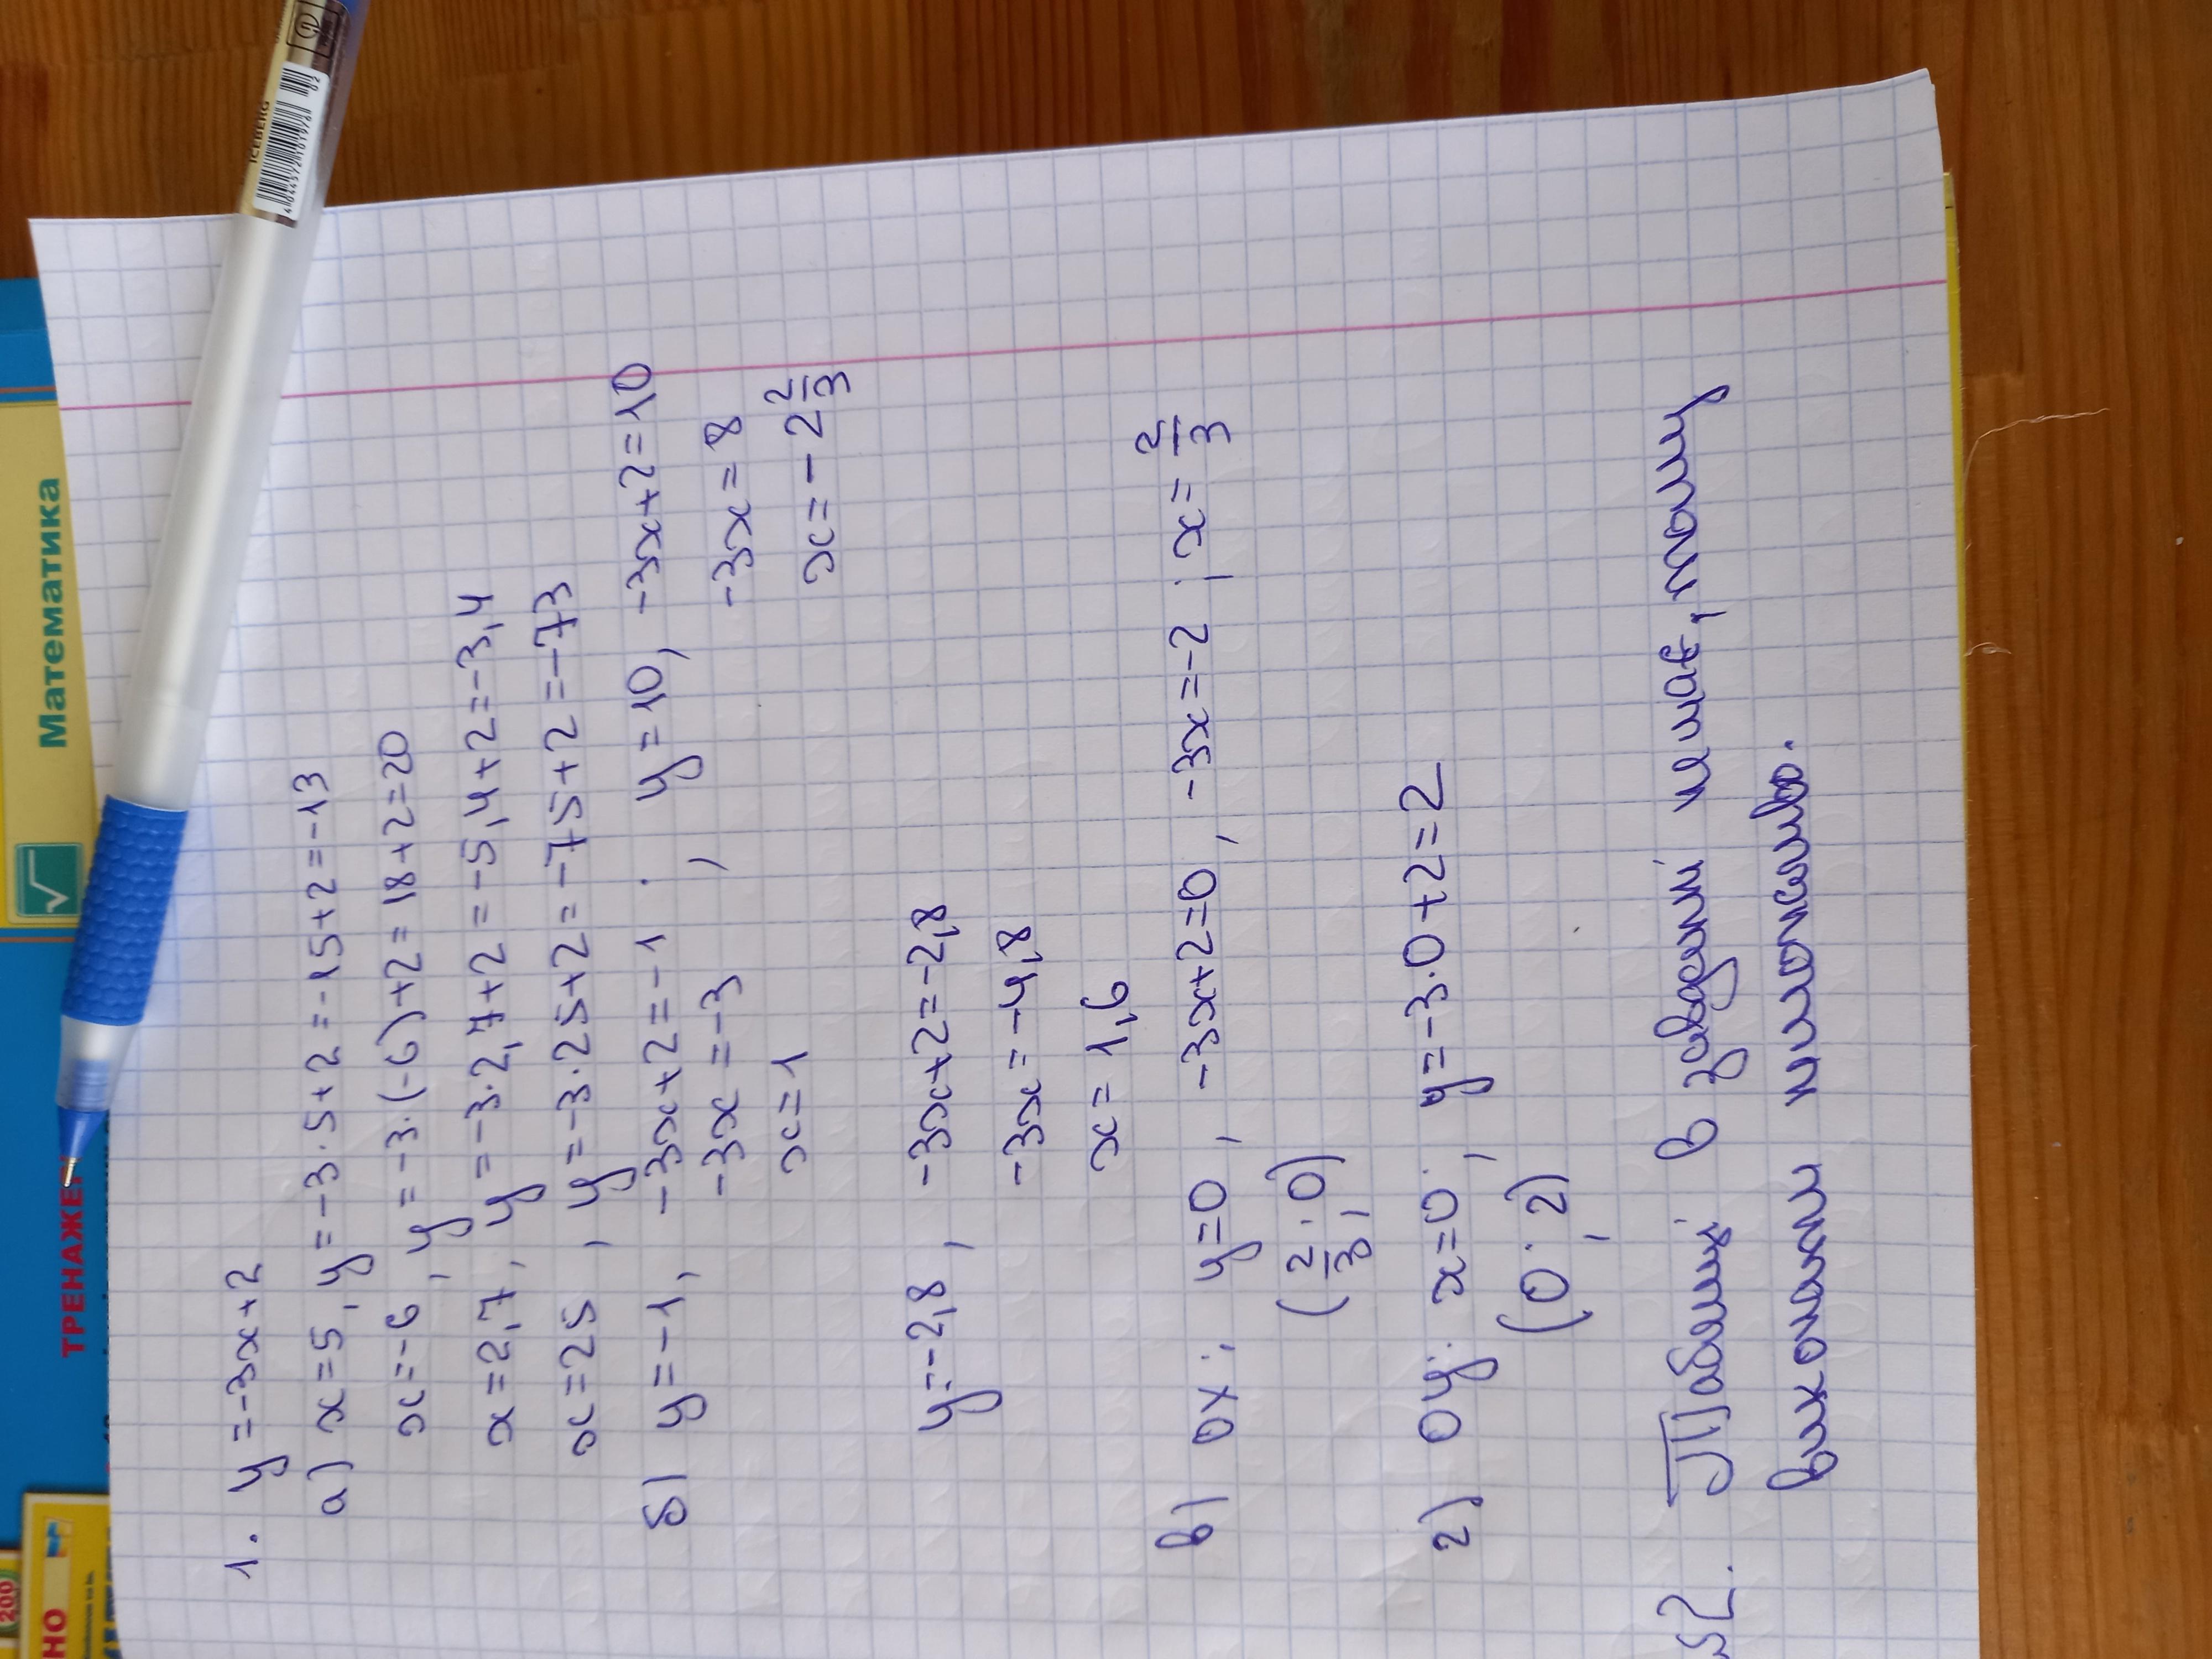 1. y=-3x+2
а) x=5, y=-3·5+2=-15+2=-13
x=-6, y=-3·(-6)+2=18+2=20
x=2,7, y=-3·2,7+2=-5,4+2=-3,4
x=25, y=-3·25+2=-75+2=-73
б) y=-1, -3x+2=-1; y=10, -3x+2=10
-3x=-3 -3x=8
x=1 x=-2 2/3
y=-2,8, -3x+2=-2,8
-3x=-4,8
x=1,6
в) OX: y=0, -3x+2=0, -3x=-2; x=2/3
(2/3; 0)
г) OY: x=0; y=-3·0+2=2
(0; 2)
№2. Таблиці в завданні немає, тому
виконати неможливо.
Математика
ТРЕНАЖЕ
ICEBERG
200
НО